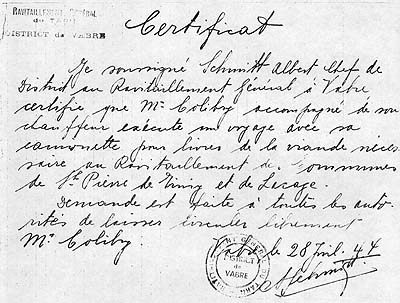 RAVITAILLEMENT GÉNÉRAL
du TARN
DISTRICT de VABRE
Certificat
Je soussigné Schmitt Albert Chef de
District au Ravitaillement Général à Vabre
certifie que Mr Colibry accompagné de son
chauffeur exécute un voyage avec sa
camionette pour livrer de la viande néces-
saire au Ravitaillement de communes
de St Pierre de et de Lacaze.
Demande est faite à toutes les auto-
rités de laisser circuler librement
Mr Colibry.
Vabre le 28 Juil. 44
Schmitt
DISTRICT
de
VABRE